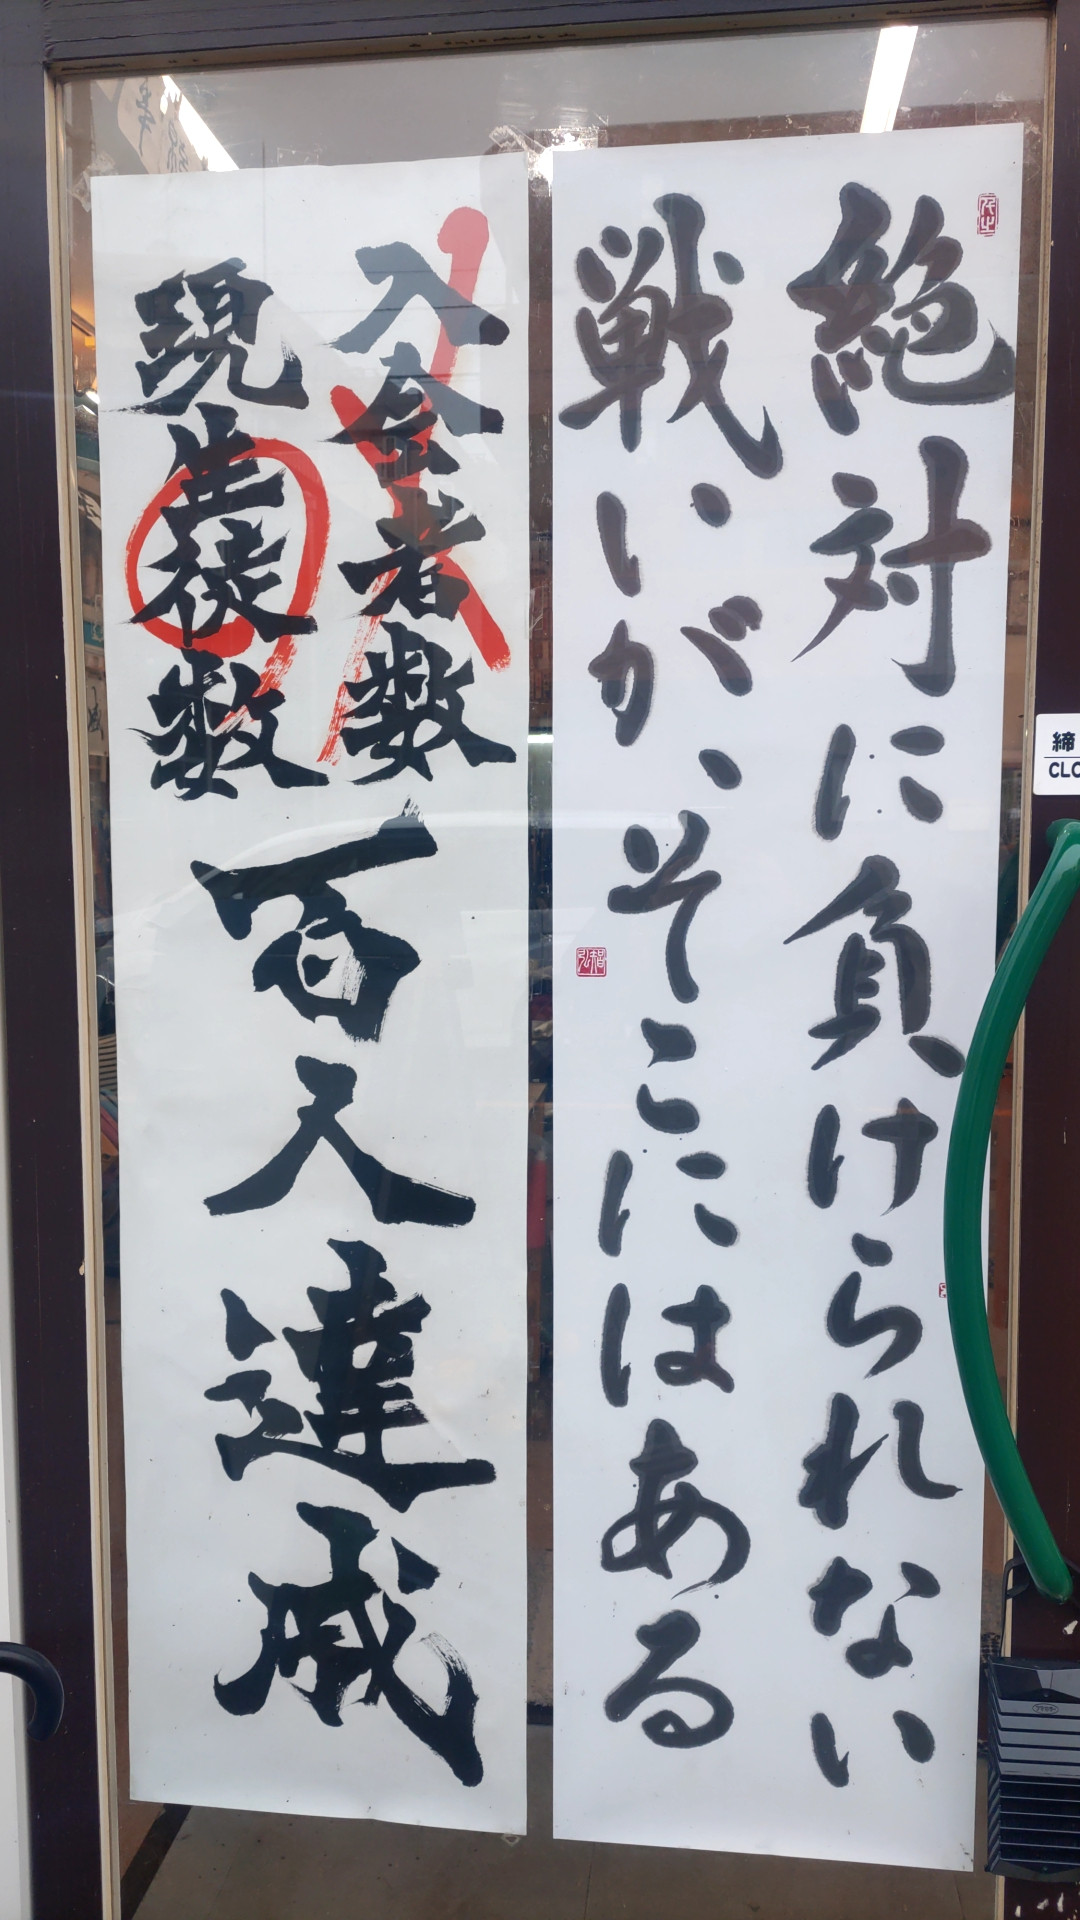 絶対に負けられない
戦いが、そこにはある
入会者数
現生徒数
百人達成
締
CLO